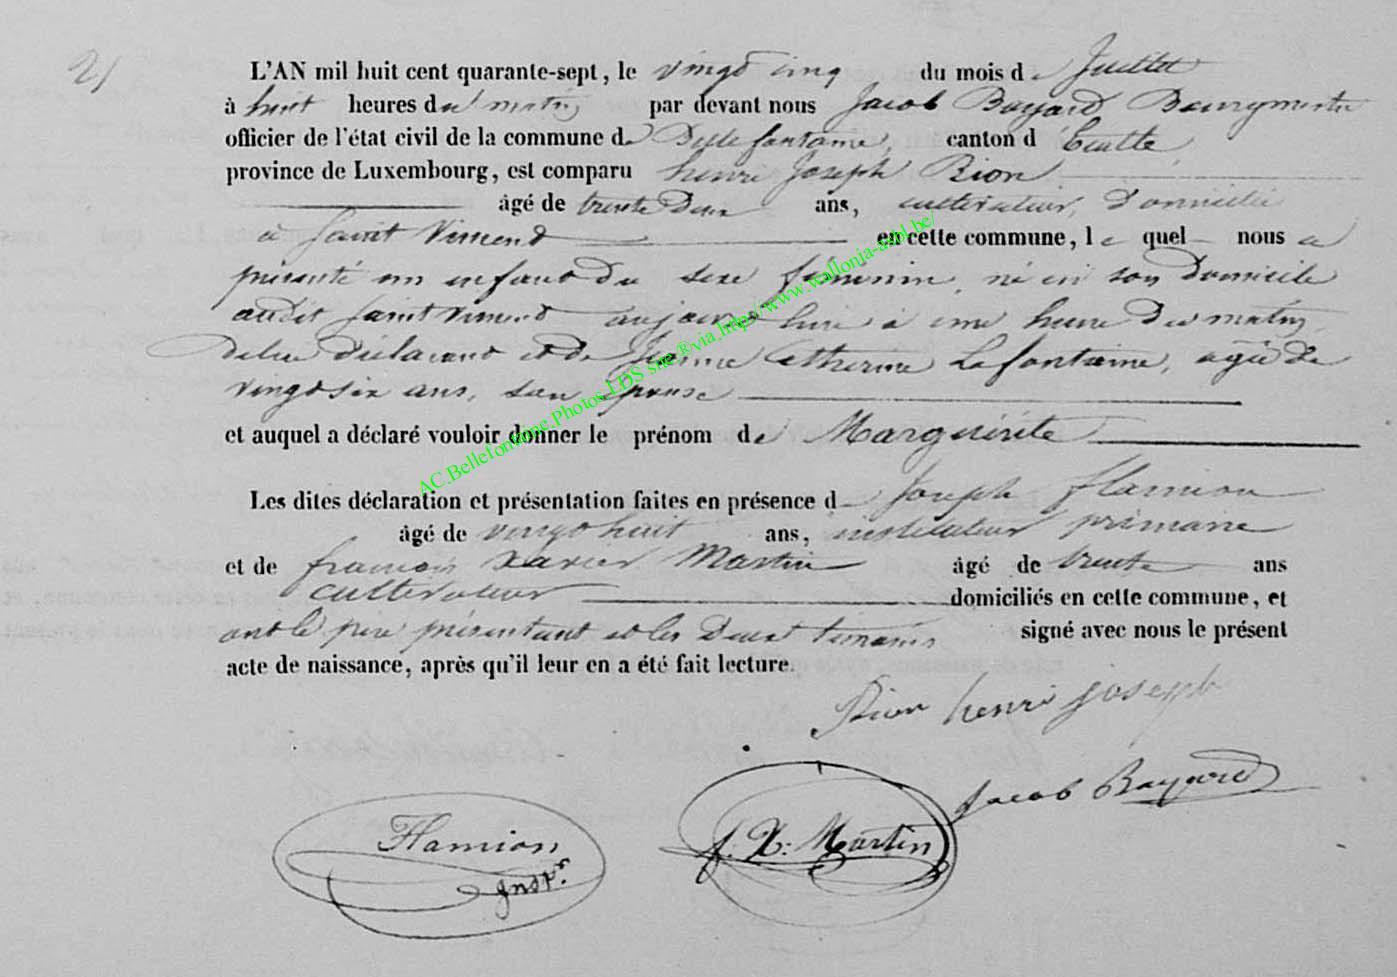 21
L'AN mil huit cent quarante-sept, le vingt cinq du mois de Juillet
à huit heures du matin par devant nous Jacob Bayard Bourgmestre
officier de l'état civil de la commune de Bellefontaine, canton d'Etalle,
province de Luxembourg, est comparu henri Joseph Rion
âgé de trente Deux ans, cultivateur, Domicilié
à Saint Vincent en cette commune, lequel nous a
présenté un enfant Du sexe féminin, né en son Domicile
audit Saint Vincent aujourd'hui à une heure Du matin,
De lui Déclarant et de Jeanne Catherine Lafontaine, agée de
vingt six ans, son épouse
et auquel a déclaré vouloir donner le prénom de Marguérite
Les dites déclaration et présentation faites en présence de Joseph flamion
âgé de vingt huit ans, instituteur primaire
et de francois Xavier Martin âgé de trente ans
cultivateur domiciliés en cette commune, et
ont le père présentant et les Deux témoins signé avec nous le présent
acte de naissance, après qu'il leur en a été fait lecture.
Rion henri joseph
Jacob Bayard
Flamion
Instr.
f. X. Martin
AC.Bellefontaine.Photos LDS site ®via http://www.wallonia-asbl.be/